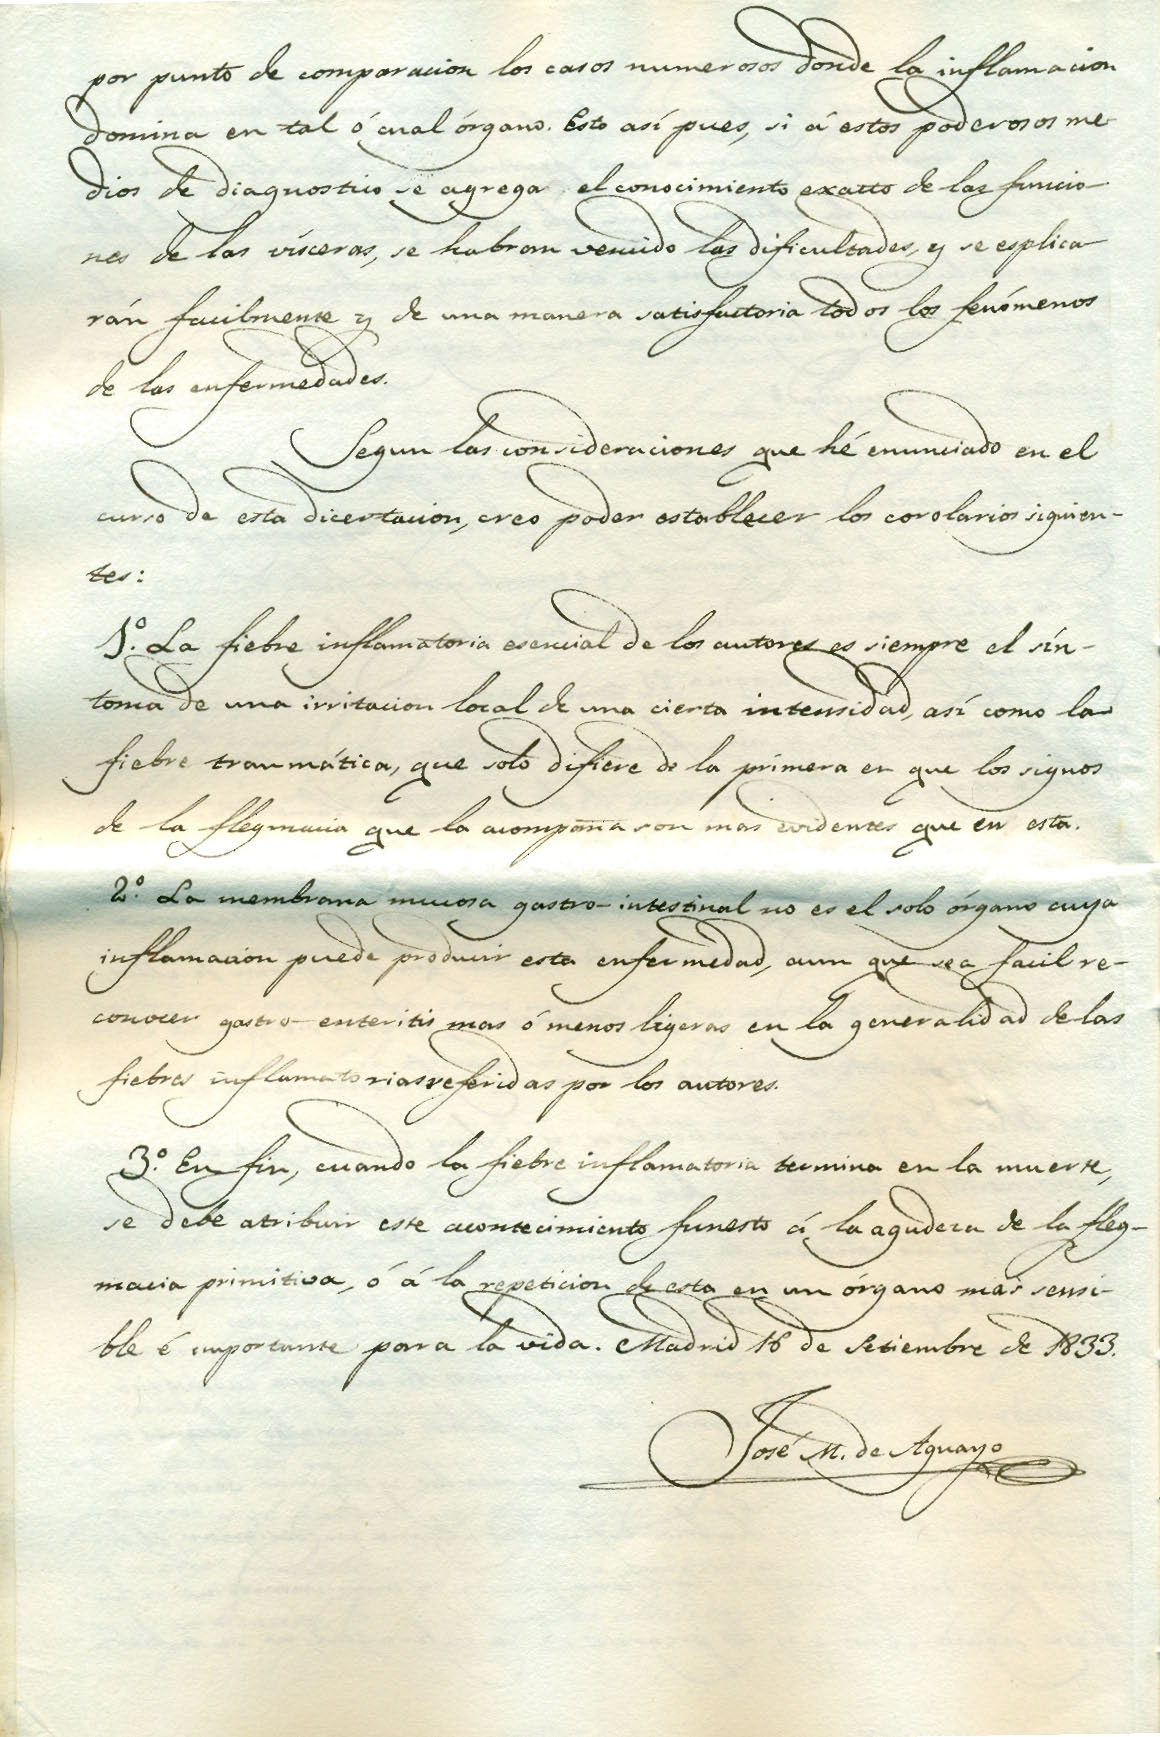 por punto de comparacion los casos numerosos donde la inflamacion
domina en tal ó cual órgano. Esto así pues, si á estos poderosos me-
dios de diagnostico se agrega el conocimiento exacto de las funcio-
nes de las vísceras, se habran vencido las dificultades, y se esplica-
rán facilmente y de una manera satisfactoria todos los fenómenos
de las enfermedades.
Segun las consideraciones que hé enunciado en el
curso de esta dicertacion, creo poder establecer los corolarios siguien-
tes:
1.º La fiebre inflamatoria esencial de los autores es siempre el sín-
toma de una irritacion local de una cierta intensidad, así como la
fiebre traumática, que solo difiere de la primera en que los signos
de la flegmacia que la acompaña son mas evidentes que en esta.
2.º La membrana mucosa gastro-intestinal no es el solo órgano cuya
inflamacion puede producir esta enfermedad, aun que sea facil re-
conocer gastro-enteritis mas ó menos ligeras en la generalidad de las
fiebres inflamatorias referidas por los autores.
3.º En fin, cuando la fiebre inflamatoria termina en la muerte,
se debe atribuir este acontecimiento funesto á la agudeza de la fleg-
macia primitiva, ó á la repeticion de esta en un órgano mas sensi-
ble é importante para la vida. Madrid 16 de Setiembre de 1833.
José M. de Aguayo